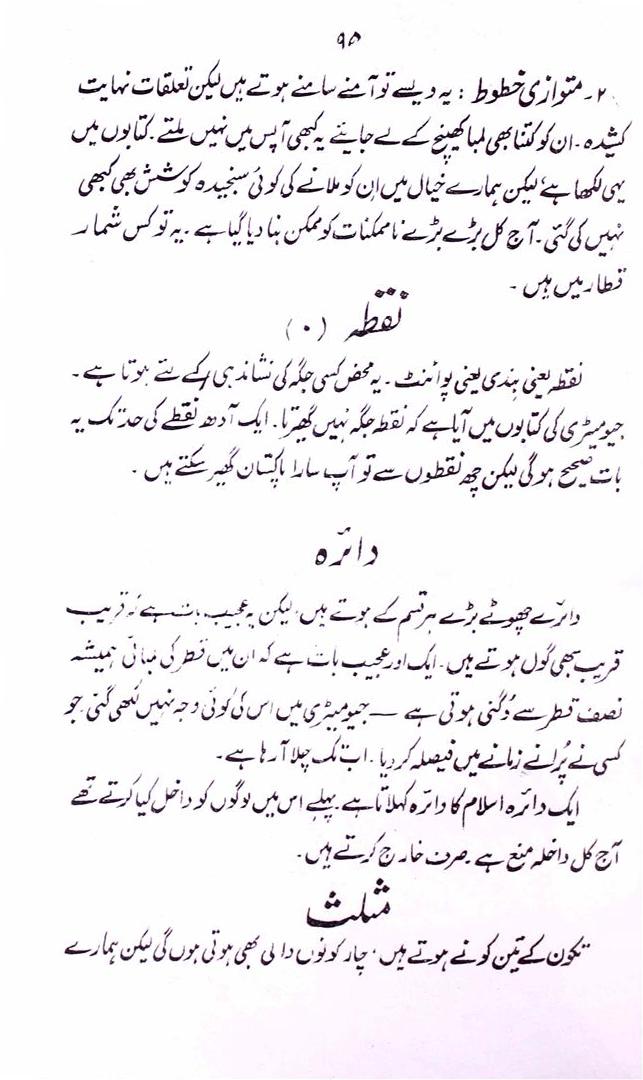 ۹۵
۲۔ متوازی خطوط : یہ ویسے تو آمنے سامنے ہوتے ہیں لیکن تعلقات نہایت
کشیدہ ۔ ان کو کتنا بھی لمبا کھینچ کے لے جایئے یہ کبھی آپس میں نہیں ملتے ۔ کتابوں میں
یہی لکھا ہے لیکن ہمارے خیال میں ان کو ملانے کی کوئی سنجیدہ کوشش بھی کبھی
نہیں کی گئی ۔ آج کل بڑے بڑے ناممکنات کو ممکن بنا دیا گیا ہے ۔ یہ تو کس شمار
قطار میں ہیں ۔
نقطہ (۰)
نقطہ یعنی بندی یعنی پوائنٹ ۔ یہ محض کسی جگہ کی نشاندہی کے لئے ہوتا ہے ۔
جیومیٹری کی کتابوں میں آیا ہے کہ نقطہ جگہ نہیں گھیرتا ۔ ایک آدھ نقطے کی حد تک یہ
بات صحیح ہوگی لیکن چھ نقطوں سے تو آپ سارا پاکستان گھیر سکتے ہیں ۔
دائرہ
دائرے چھوٹے بڑے ہر قسم کے ہوتے ہیں، لیکن یہ عجیب بات ہے کہ قریب
قریب سبھی گول ہوتے ہیں ۔ ایک اور عجیب بات ہے کہ ان میں قطر کی لمبائی ہمیشہ
نصف قطر سے دُگنی ہوتی ہے — جیومیٹری میں اس کی کوئی وجہ نہیں لکھی گئی ۔ جو
کسی نے پُرانے زمانے میں فیصلہ کر دیا ۔ اب تک چلا آ رہا ہے ۔
ایک دائرہ اسلام کا دائرہ کہلاتا ہے ۔ پہلے اس میں لوگوں کو داخل کیا کرتے تھے
آج کل داخلہ منع ہے ۔ صرف خارج کرتے ہیں ۔
مثلث
تکون کے تین کونے ہوتے ہیں ، چار کونوں والی بھی ہوتی ہوں گی لیکن ہمارے